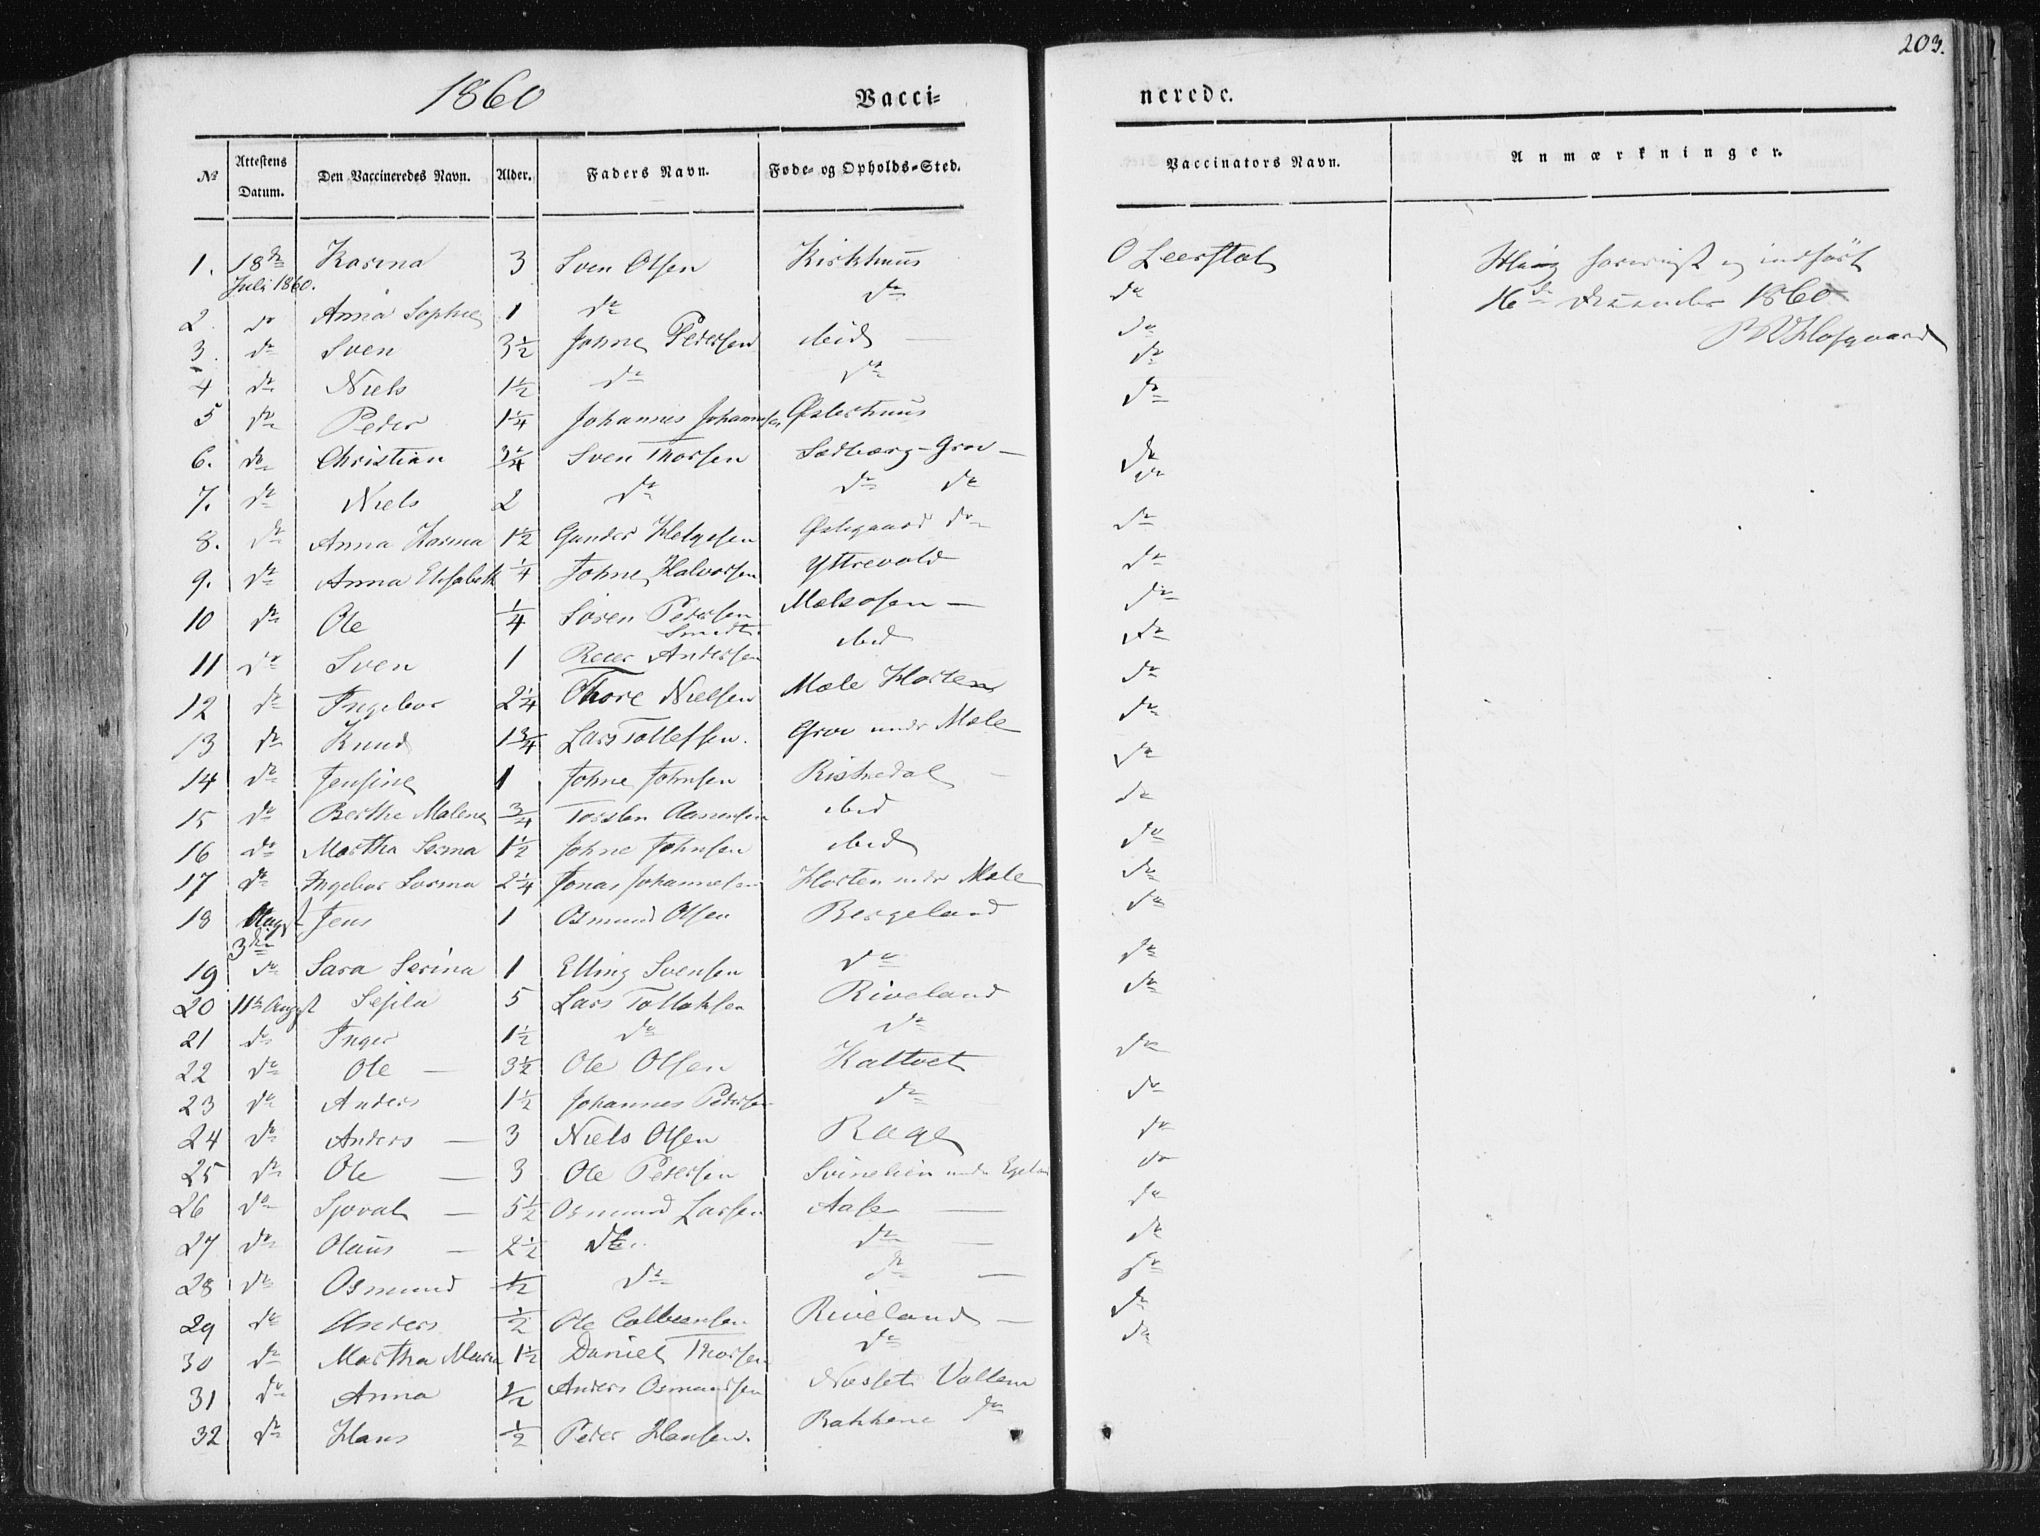 203.
1860 Vacci= nerede.
№ Attestens Datum. Den Vaccineredes Navn. Alder. Faders Navn. Føde= og Opholds=Sted. Vaccinators Navn. Anmærkninger.
1. 18de Juli 1860. Karina 3 Sven Olsen Kirkhuus O Leerstol
indført
16de December 1860
2. do Anna Sophie 1 do do do
3. do Sven 3½ Johne Pedersen ibid — do
4 do Niels 1½ do do do
5 do Peder 1¼ Johannes Johannesen Østerhuus do
6. do Christian 3/4 Sven Thorsen Sædberg-Grov — do
7. do Niels 2 do do do do
8. do Anna Karina 1½ Gunder Helgesen Østigaard do do
9. do Anna Elisabeth ¼ Johne Halvorsen Yttrevold do
10 do Ole ¼ Sören Pedersen Smedt Mælsosen — do
11 do Sven 1 Reier Andersen ibid do
12 do Ingebor 2¼ Thore Nielsen Mæle Horten do
13 do Knud 1¾ Lars Tollefsen. Grov under Mæle do
14 do Jensine 1 Johne Johnsen Riskedal do
15 do Berthe Malene ¾ Torsten Aanensen ibid do
16 do Martha Serina 1½ Johne Johnsen ibid do
17 do Ingebor Serina 2¼ Jonas Johannesen Horten under Mæle do
18 Augst 3die Jens 1 Osmund Olsen Bergeland do
19 do Sara Serina 1 Elling Svensen do do
20 11te Augst Sesila 5 Lars Tollaksen Riveland do
21 do Inger 1½ do do
22 do Ole — 3½ Ole Olsen Kaltvet do
23 do Anders 1½ Johannes Pedersen do do
24 do Anders — 3 Niels Olsen Rage do
25 do Ole — 3 Ole Pedersen Svinelien under do
26 do Sjovat — 5½ Osmund Larsen Aase — do
27 do Olaus — 2½ do. do — do
28 do Osmund ½ do do — do
29 do Anders ½ Ole Colbensen Riveland — do
30 do Martha Maria 1½ Daniel Thorsen do do
31 do Anna ½ Anders Osmundsen Næsset Valtem
32 do Hans ½ Peder Hansen. Bakkene do